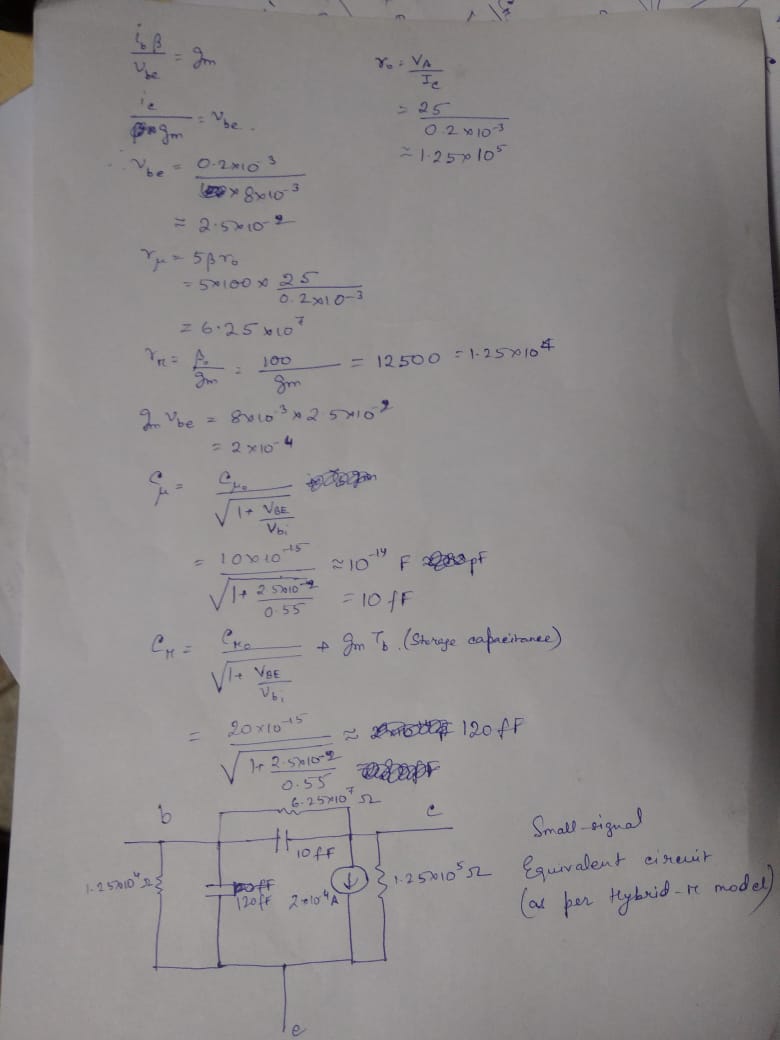 i_b β / v_be = g_m
i_c / g_m = v_be .
∴ v_be = 0.2×10^-3 / 8×10^-3
= 2.5×10^-2
r_o = V_A / I_c
= 25 / 0.2×10^-3
= 1.25×10^5
r_μ = 5βr_o
= 5×100× 25 / 0.2×10^-3
= 6.25×10^7
r_π = β_o / g_m = 100 / g_m = 12500 = 1.25×10^4
g_m v_be = 8×10^-3 × 2.5×10^-2
= 2×10^-4
C_μ = C_μo / √(1+ V_BE / V_bi)
= 10×10^-15 / √(1+ 2.5×10^-2 / 0.55) ≈ 10^-14 F
= 10 fF
C_π = C_πo / √(1+ V_BE / V_bi) + g_m T_b . (Storage capacitance)
= 20×10^-15 / √(1+ 2.5×10^-2 / 0.55) ≈ 120 fF
6.25×10^7 Ω
b
c
10 fF
1.25×10^4 Ω
120fF
2×10^-4 A
1.25×10^5 Ω
e
Small-signal
Equivalent circuit
(as per Hybrid-π model)